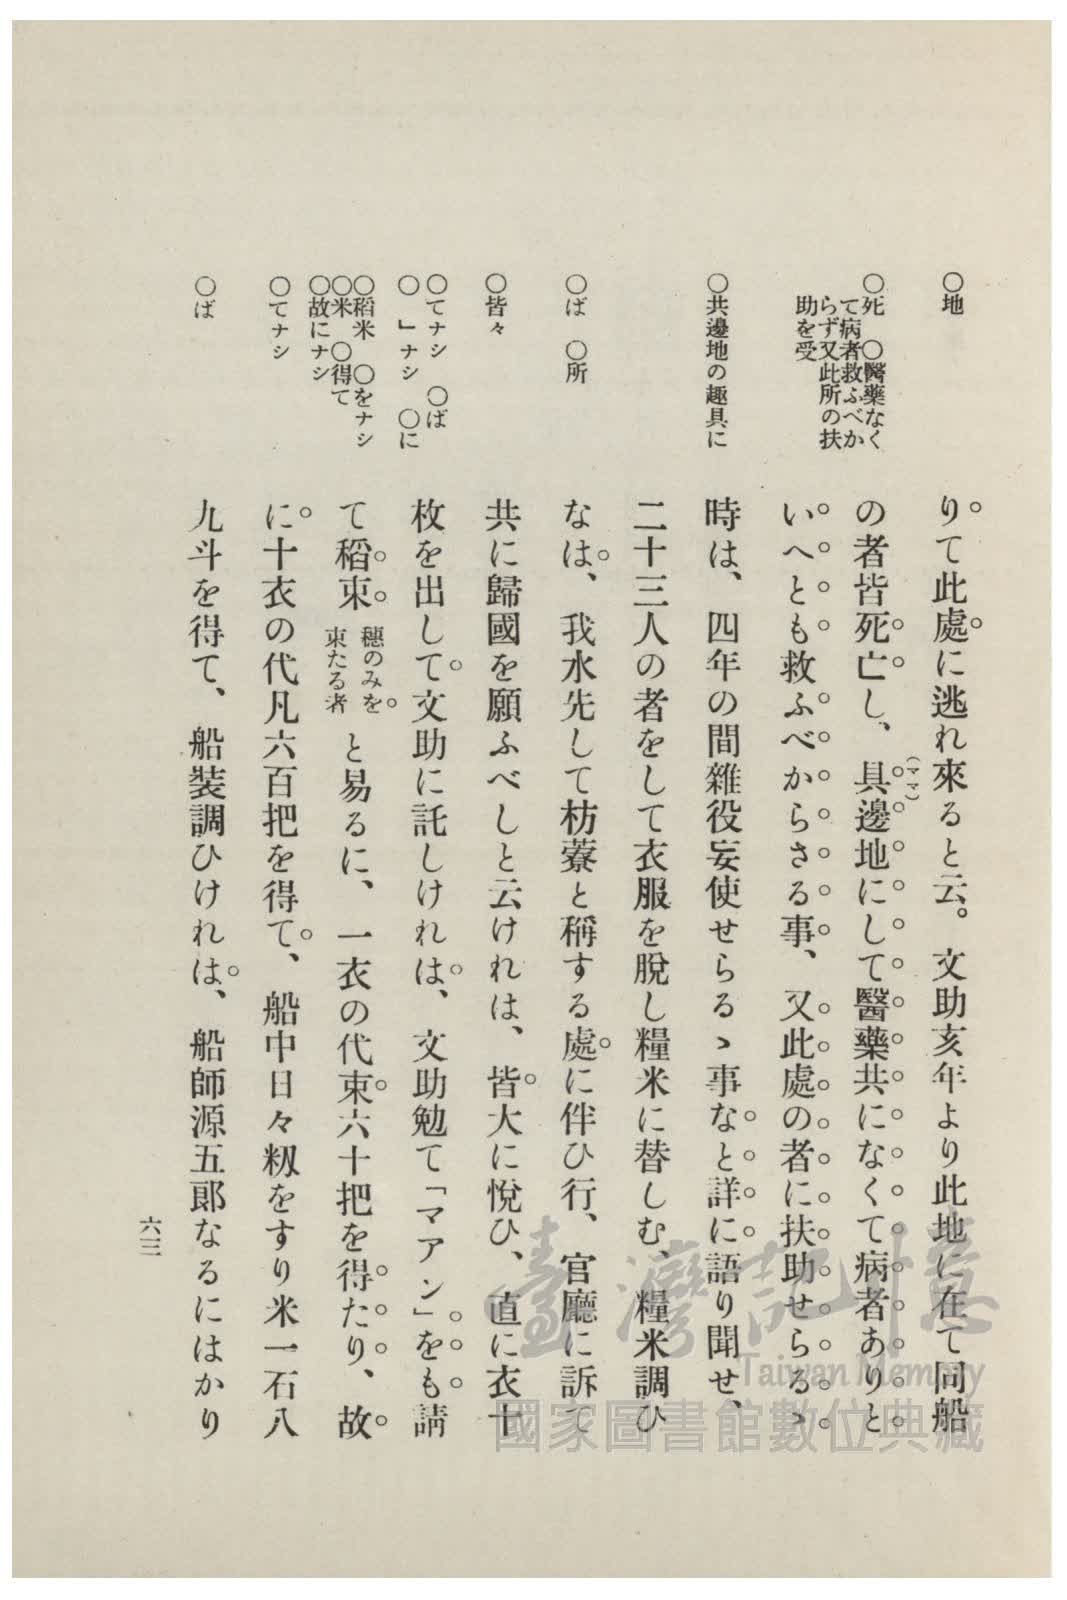 ○地
○死　○醫藥なく
て病者救ふべか
らず又此所の扶
助を受
○共邊地の趣具に
○ば　○所
○皆々
○てナシ　○ば
○　」ナシ　○に
○稻米　○をナシ
○米　○得て
○故にナシ
○てナシ
○ば
りて此處に逃れ來ると云。　文助亥年より此地に在て同船
の者皆死亡し、　具邊地にして醫藥共になくて病者ありと
(ママ)
いへとも救ふべからさる事、　又此處の者に扶助せらるゝ
時は、　四年の間雜役妄使せらるゝ事なと詳に語り聞せ、
二十三人の者をして衣服を脱し糧米に替しむ、糧米調ひ
なは、　我水先して枋藔と稱する處に伴ひ行、　官廳に訴て
共に歸國を願ふべしと云けれは、　皆大に悅ひ、　直に衣十
枚を出して文助に託しけれは、　文助勉て「マアン」をも請
て稻束　穗のみを
束たる者　と易るに、　一衣の代束六十把を得たり、　故
に十衣の代凡六百把を得て、　船中日々籾をすり米一石八
九斗を得て、　船裝調ひけれは、　船師源五郞なるにはかり
六三
臺灣記憶
Taiwan Memory
國家圖書館數位典藏